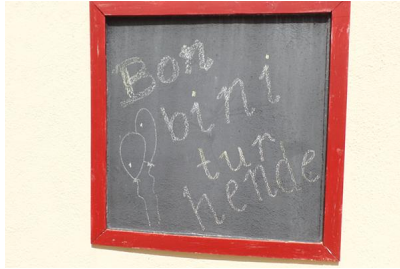 Bon
bini
tur
hende